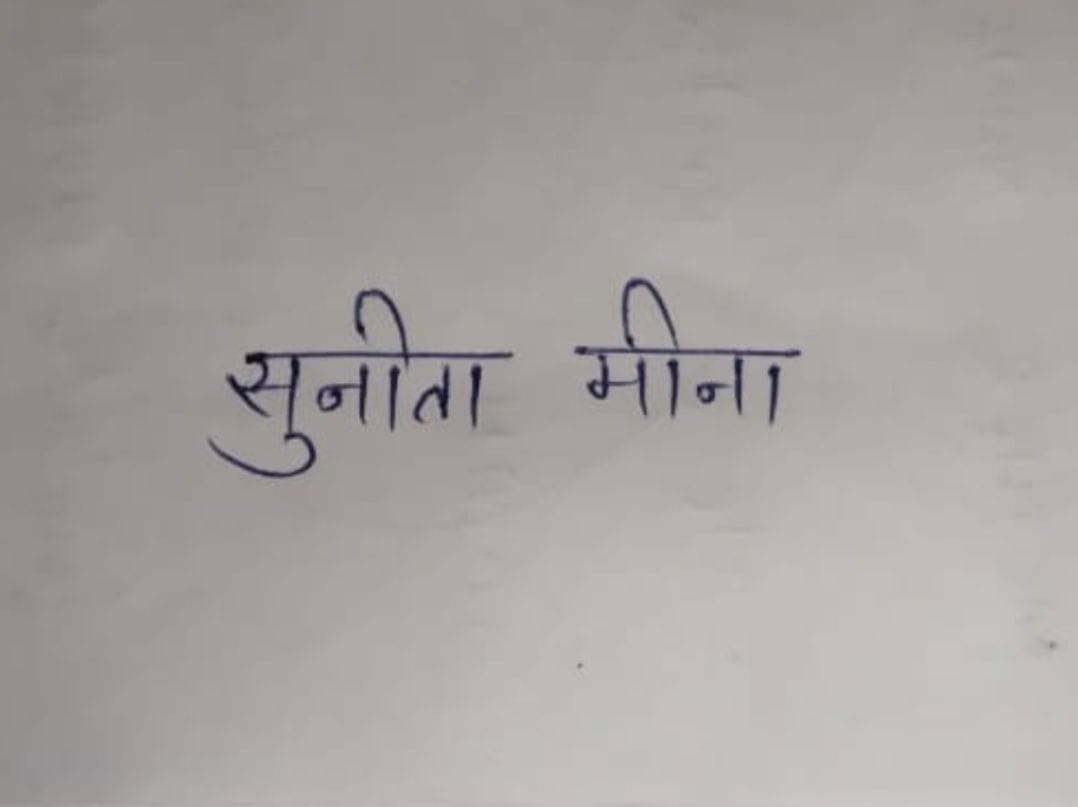 सुनीता मीना